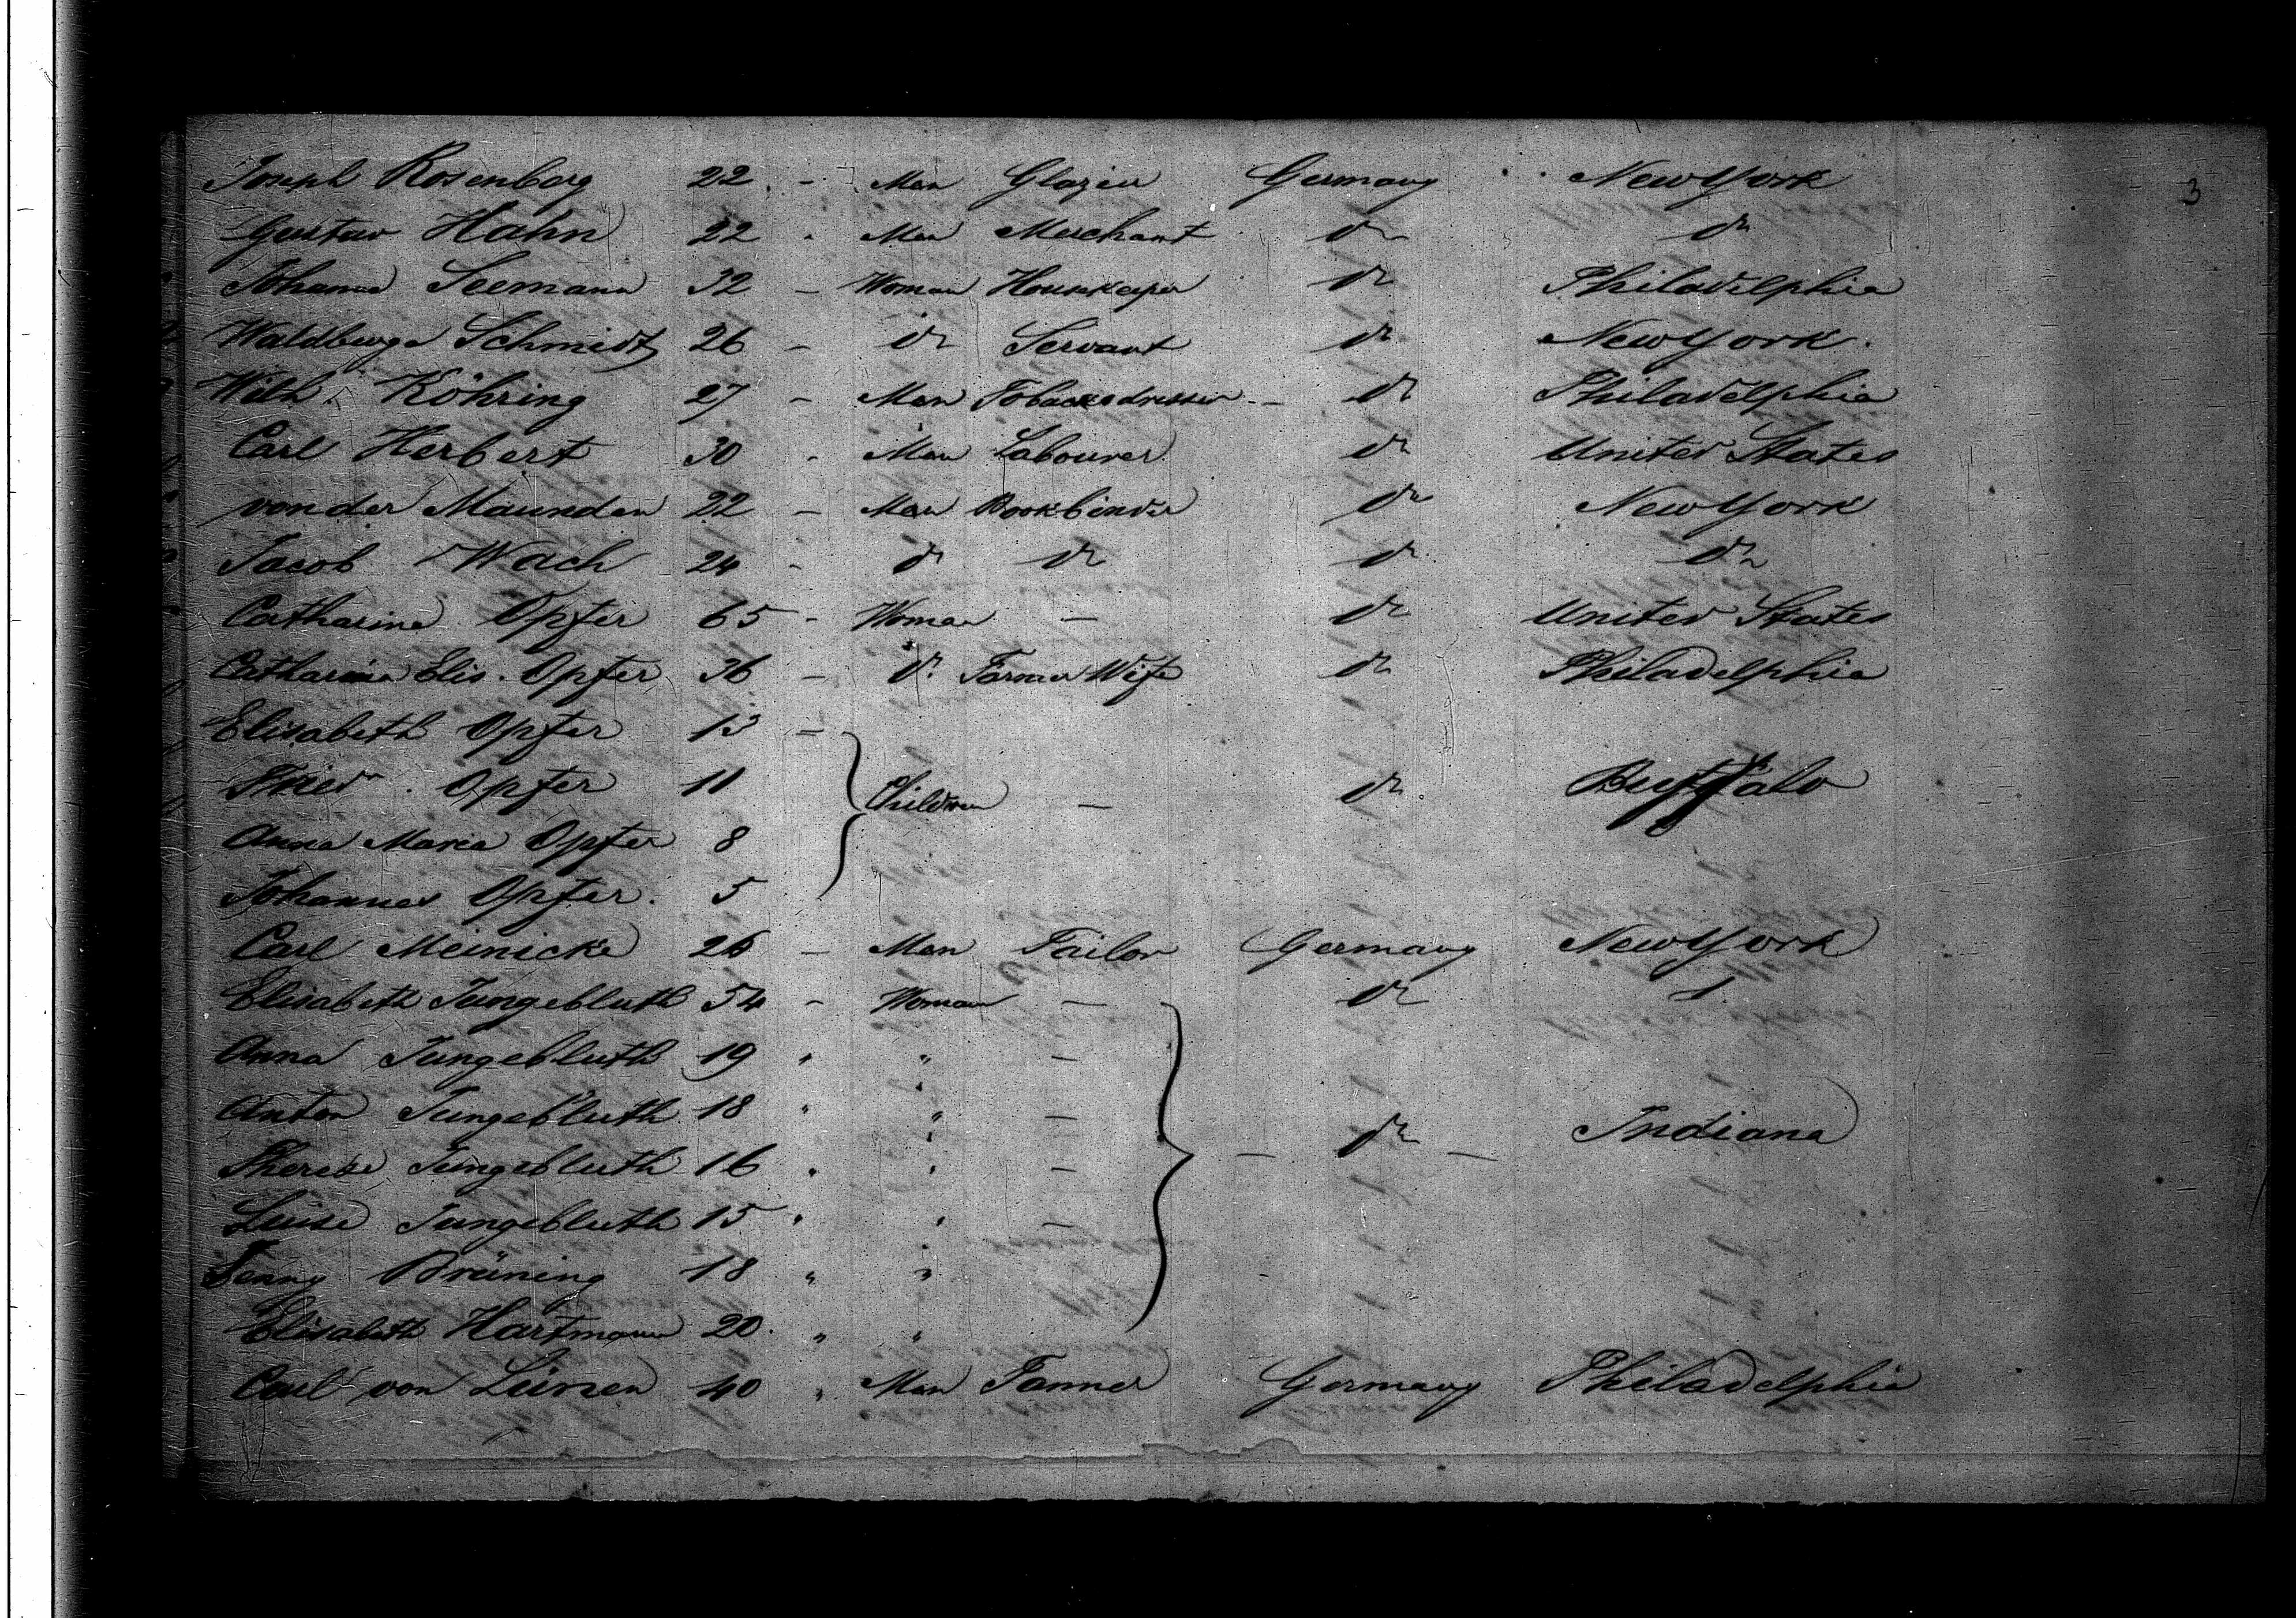 3
Joseph Rosenberg 22 - Man Glazier Germany New York
Gustav Hahn 22 - Man Merchant do do
Johanna Seemann 32 - Woman Housekeeper do Philadelphia
Waldburga Schmidt 26 - do Servant do New York.
Wilh. Köhring 27 - Man Tobackodresser - do Philadelphia
Carl Herbert 30 - Man Labourer do United States
von der Maunden 22 - Man Bookbinder do New York
Jacob Wach 24 - do do do do
Catharina Opfer 65 - Woman - do United States
Catharina Elis. Opfer 36 - do Farmer Wife do Philadelphia
Elisabeth Opfer 13 -
Fried. Opfer 11 Children - do Buffalo
Anna Maria Opfer 8
Johannes Opfer. 5
Carl Meinicke 26 - Man Tailor Germany New York
Elisabeth Jungebluth 54 - Woman - do
Anna Jungebluth 19 " " -
Anton Jungebluth 18 " " -
Therese Jungebluth 16 " " - - do - Indiana
Luise Jungebluth 15 " " -
Jenny Brüning 18 " "
Elisabeth Hartmann 20. " "
Carl von Lünen 40 " Man Tanner Germany Philadelphia